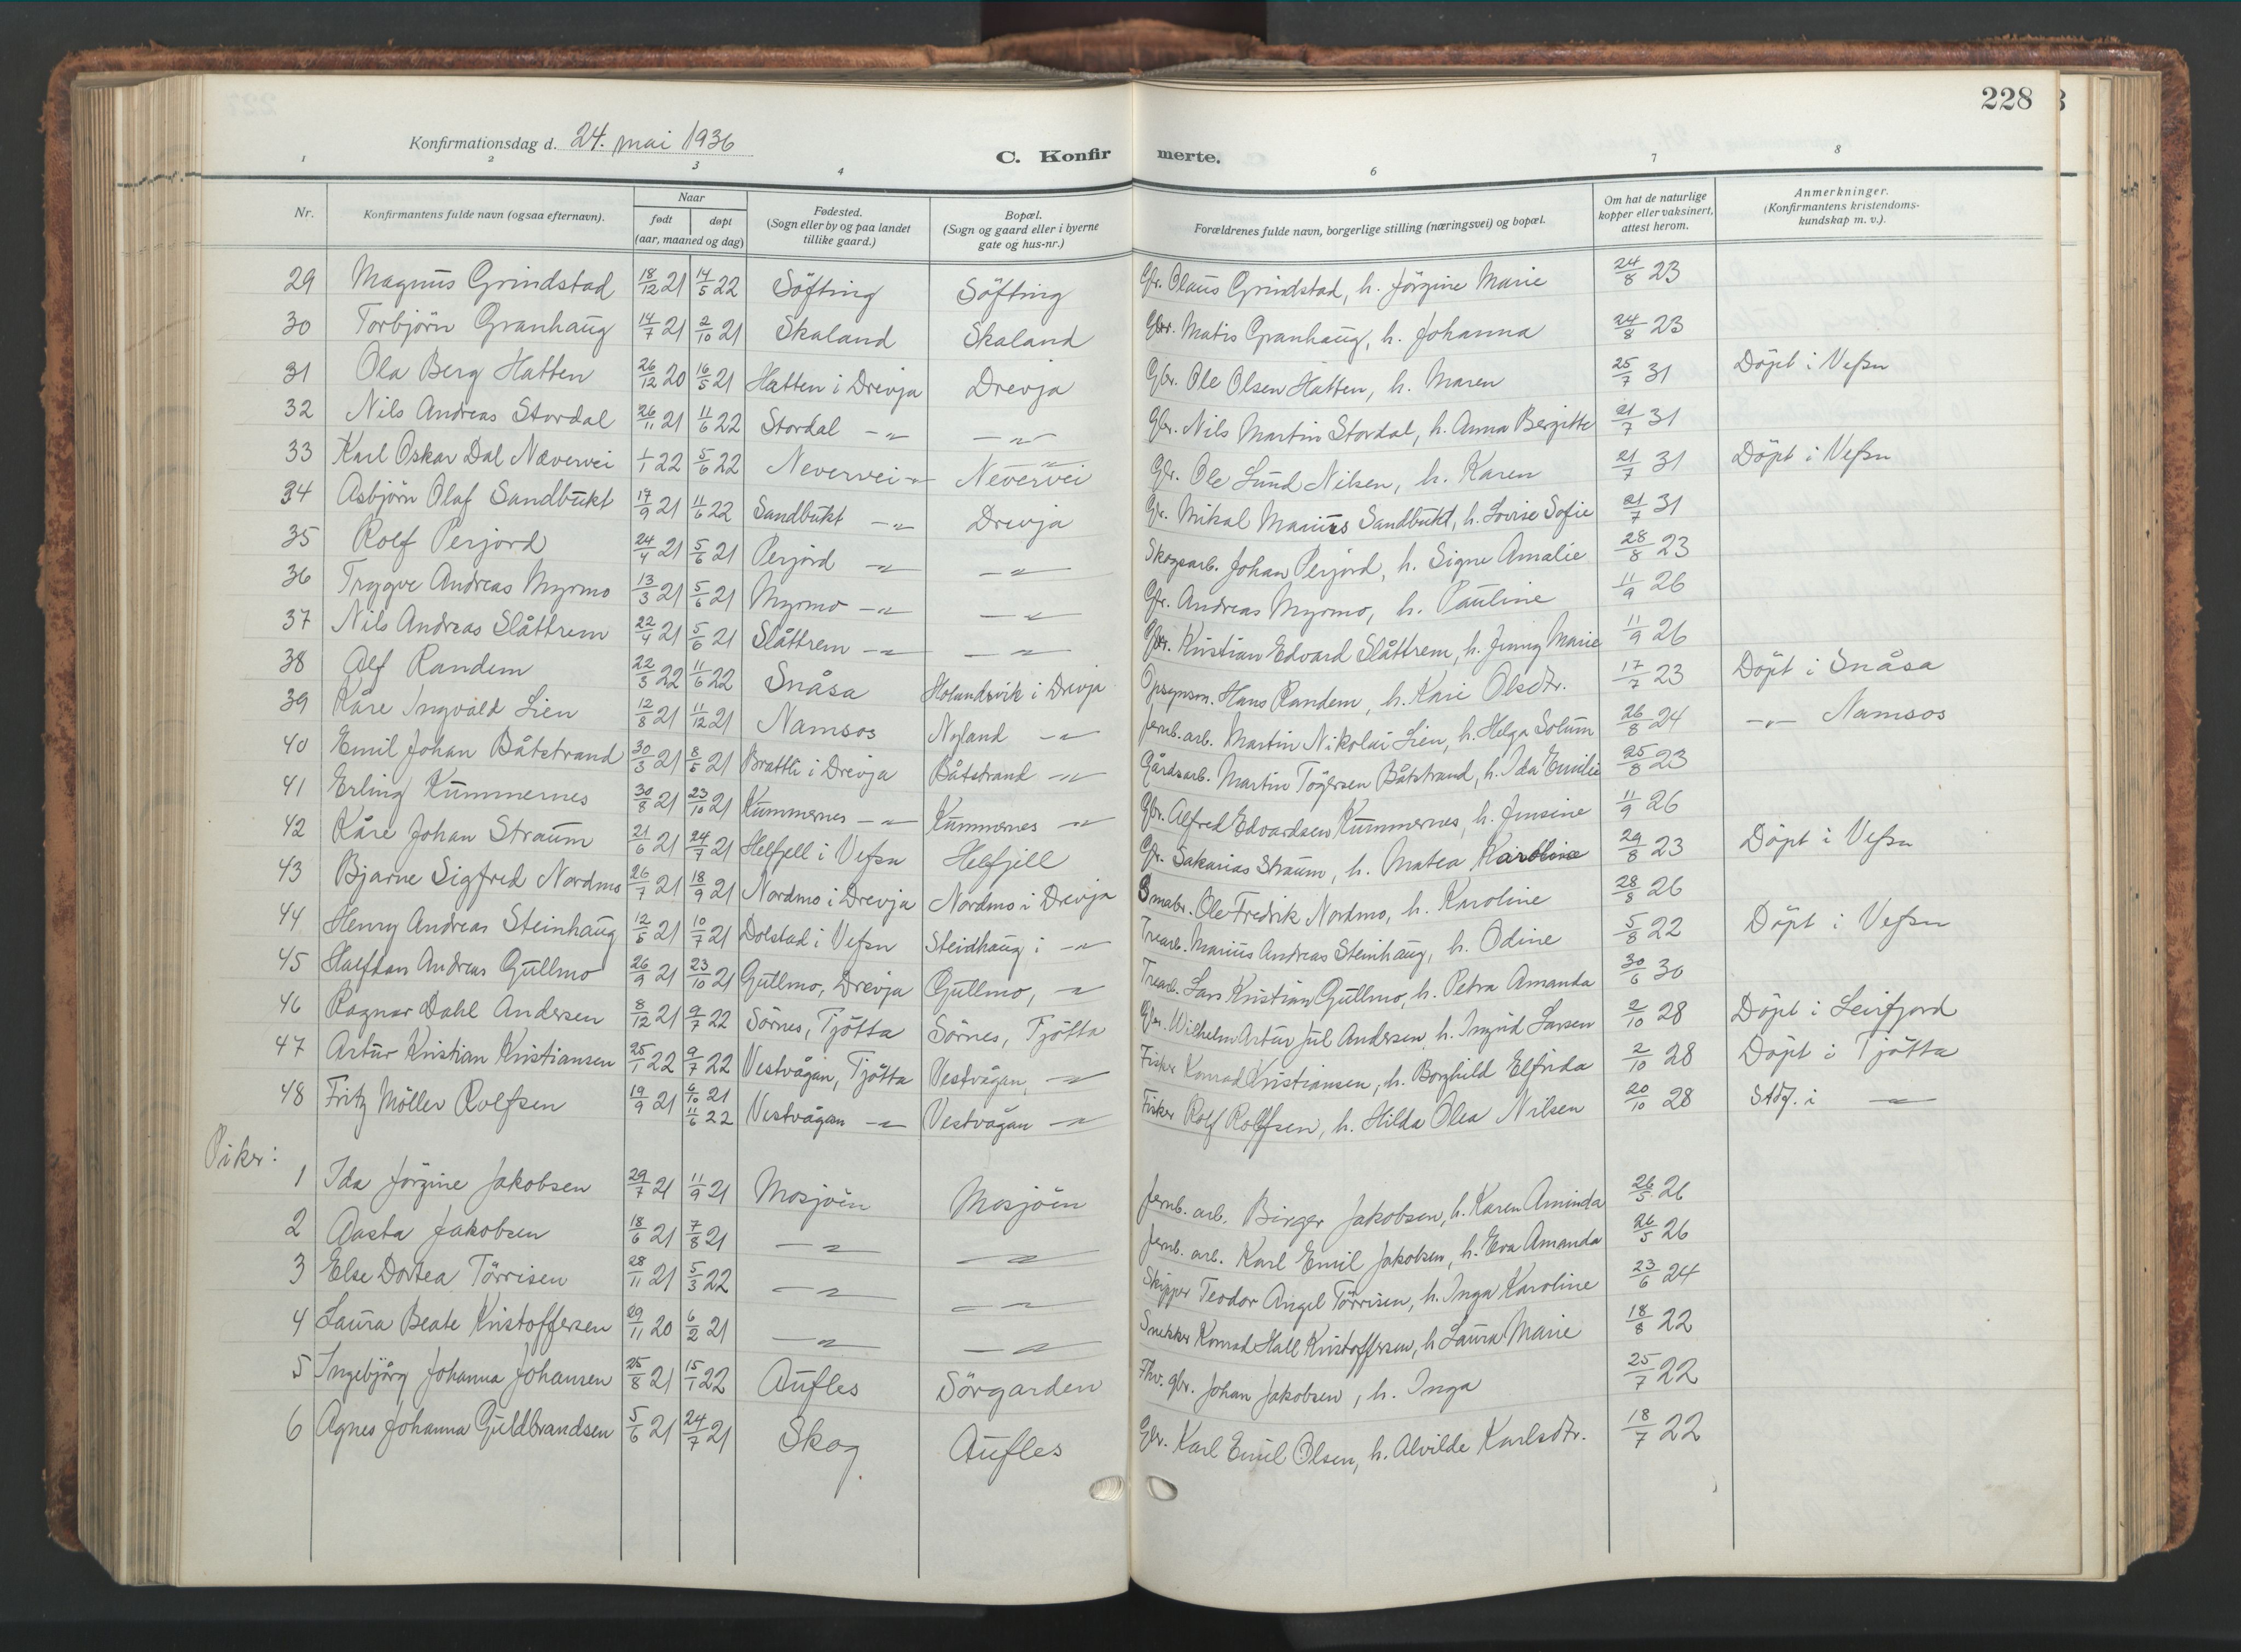 228
Konfirmationsdag d. 24. mai 1936
C. Konfirmerte.
1 2 3 4 6 7 8
Nr. | Konfirmantens fulde navn (ogsaa efternavn). | Naar født døpt (aar, maaned og dag) | Fødested. (Sogn eller by og paa landet tillike gaard.) | Bopæl. (Sogn og gaard eller i byerne gate og hus-nr.) | Forældrenes fulde navn, borgerlige stilling (næringsvei) og bopæl. | Om hat de naturlige kopper eller vaksinert, attest herom. | Anmerkninger. (Konfirmantens kristendoms-kundskap m. v.).
29 Magnus Grindstad 18/12 21 14/5 22 Söfting Söfting Gbr. Olaus Grindstad, h. Jörgine Marie 24/8 23
30 Torbjörn Granhaug 14/7 21 2/10 21 Skaland Skaland Gbr. Matis Granhaug, h. Johanna 24/8 23
31 Ola Berg Hatten 26/12 20 16/5 21 Hatten i Drevja Drevja Gbr. Ole Olsen Hatten, h. Maren 25/7 31 Döpt i Vefsn
32 Nils Andreas Stordal 26/11 21 11/6 22 Stordal -"- -"- Gbr. Nils Martin Stordal, h. Anna Bergitte 21/7 31
33 Karl Oskar Dal Nævervei 1/1 22 5/6 22 Nevervei -"- Nevervei Gbr. Ole Lund Nilsen, h. Karen 21/7 31 Döpt i Vefsn
34 Asbjörn Olaf Sandbukt 17/9 21 11/6 22 Sandbukt -"- Drevja Gbr. Mikal Marius Sandbukt, h. Lovise Sofie 21/7 31
35 Rolf Perjord 24/4 21 5/6 21 Perjord -"- -"- Skogsarb. Johan Perjord, h. Signe Amalie 28/8 23
36 Trygve Andreas Myrmo 13/3 21 5/6 21 Myrmo -"- -"- Gbr. Andreas Myrmo, h. Pauline 11/9 26
37 Nils Andreas Slåttrem 22/4 21 5/6 21 Slåttrem -"- -"- Gbr. Kristian Edvard Slåttrem, h. Jenny Marie 11/9 26
38 Alf Randem 22/3 22 11/6 22 Snåsa Holandsvik i Drevja Opsynsm. Hans Randem, h. Kari Olsdtr. 17/7 23 Döpt i Snåsa
39 Kåre Ingvald Lien 12/8 21 11/12 21 Namsos Nyland -"- Jernb.arb. Martin Nikolai Lien, h. Helga Solum 26/8 24 -"- Namsos
40 Emil Johan Båtstrand 30/3 21 8/5 21 Brattli i Drevja Båtstrand -"- Gårdsarb. Martin Tögersen Båtstrand, h. Ida Emilie 25/8 23
41 Erling Kummernes 30/8 21 23/10 21 Kummernes -"- Kummernes -"- Gbr. Alfred Edvardsen Kummernes, h. Jensine 11/9 26
42 Kåre Johan Straum 21/6 21 24/7 21 Helfjell i Vefsn Helfjell Gbr. Sakarias Straum, h. Matea Karoline 29/8 23 Döpt i Vefsn
43 Bjarne Sigfred Nordmo 26/7 21 18/9 21 Nordmo i Drevja Nordmo i Drevja Småbr. Ole Fredrik Nordmo, h. Karoline 28/8 26
44 Henry Andreas Steinhaug 12/5 21 10/7 21 Dolstad i Vefsn Steidhaug i -"- Trearb. Marius Andreas Steinhaug, h. Odine 5/8 22 Döpt i Vefsn
45 Halfdan Andreas Gullmo 26/9 21 23/10 21 Gullmo, Drevja Gullmo, -"- Trearb. Lars Kristian Gullmo, h. Petra Amanda 30/6 30
46 Ragnar Dahl Andersen 8/12 21 9/7 22 Sörnes, Tjötta Sörnes, Tjötta Gbr. Wilhelm Artur Jul Andersen, h. Ingrid Larsen 2/10 28 Döpt i Leirfjord
47 Artur Kristian Kristiansen 25/1 22 9/7 22 Vestvågan, Tjötta Vestvågan, -"- Fisker Konrad Kristiansen, h. Borghild Elfrida 2/10 28 Döpt i Tjötta
48 Fritz Möller Rolfsen 19/9 21 6/10 21 11/6 22 Vestvågan -"- Vestvågan -"- Fisker Rolf Rolfsen, h. Hilda Olea Nilsen 20/10 28 Stdf. i -"-
Piker:
1 Ida Jörgine Jakobsen 29/7 21 11/9 21 Mosjöen Mosjöen Jernb. arb. Birger Jakobsen, h. Karen Aminda 26/5 26
2 Aasta Jakobsen 18/6 21 7/8 21 -"- -"- Jernb. arb. Karl Emil Jakobsen, h. Eva Amanda 26/5 26
3 Else Dortea Törrisen 28/11 21 5/3 22 -"- -"- Skipper Teodor Angel Törrisen, h. Inga Karoline 23/6 24
4 Laura Beate Kristoffersen 29/11 20 6/2 21 -"- -"- Snekker Konrad Hall Kristoffersen, h Laura Marie 18/8 22
5 Ingebjörg Johanna Johansen 25/8 21 15/1 22 Aufles Sörgarden Fhv. gbr. Johan Jakobsen, h. Inga 25/7 22
6 Agnes Johanna Guldbrandsen 5/6 21 24/7 21 Skog Aufles Gbr. Karl Emil Olsen, h. Alvilde Karlsdtr. 18/7 22